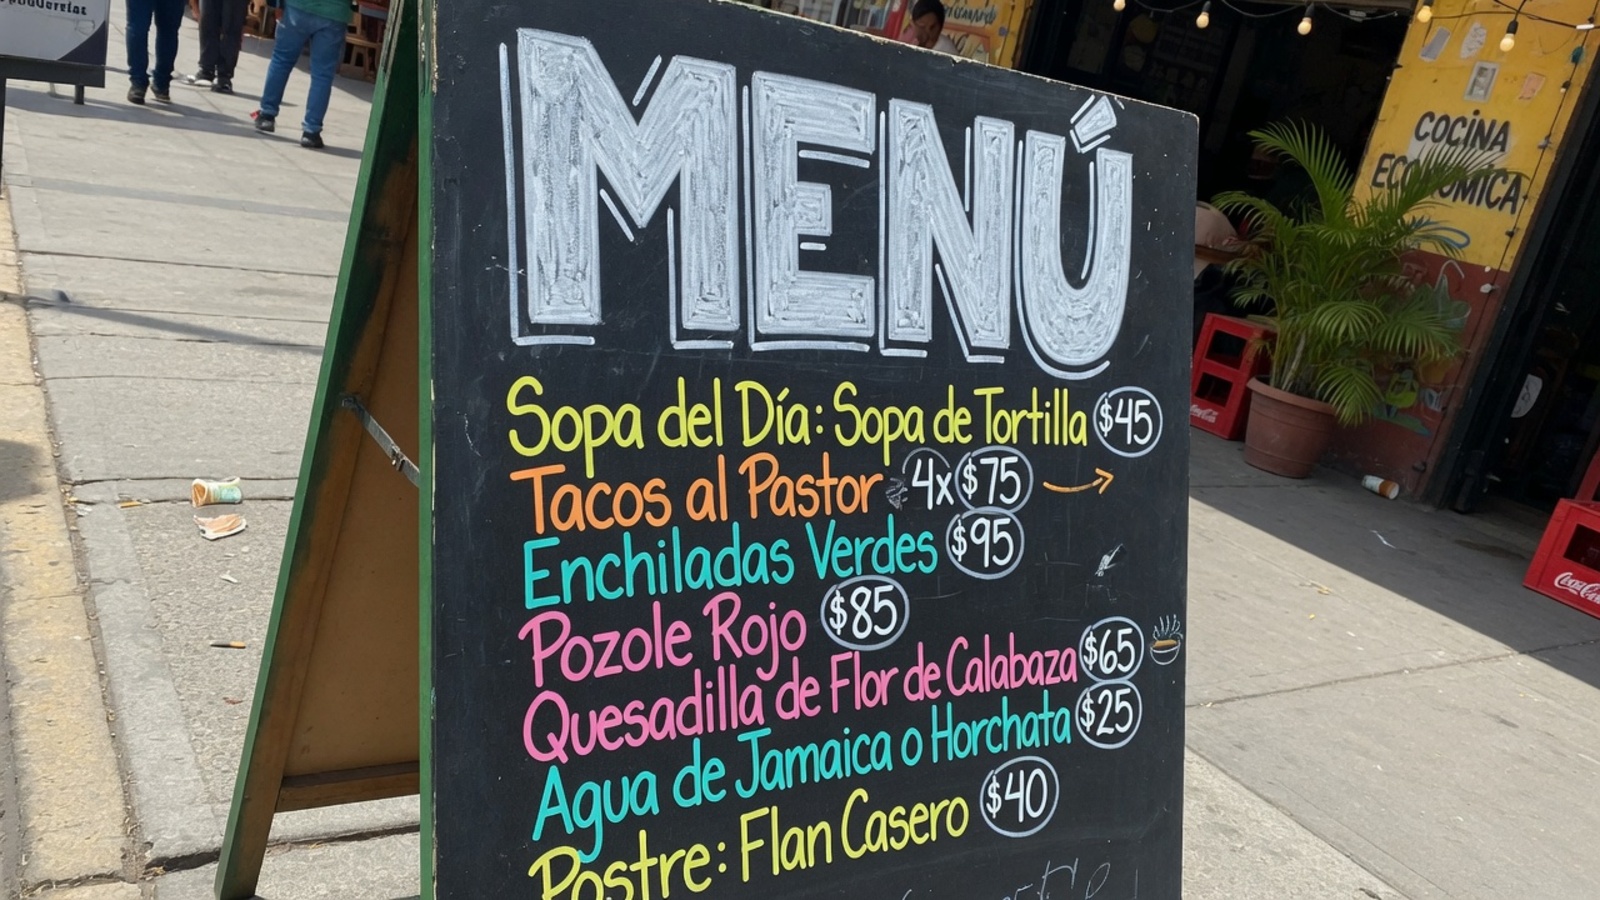 MENÚ
Sopa del Día: Sopa de Tortilla $45
Tacos al Pastor 4x $75
Enchiladas Verdes $95
Pozole Rojo $85
Quesadilla de Flor de Calabaza $65
Agua de Jamaica o Horchata $25
Postre: Flan Casero $40
COCINA
ECONÓMICA
Coca-Cola
Coca-Cola